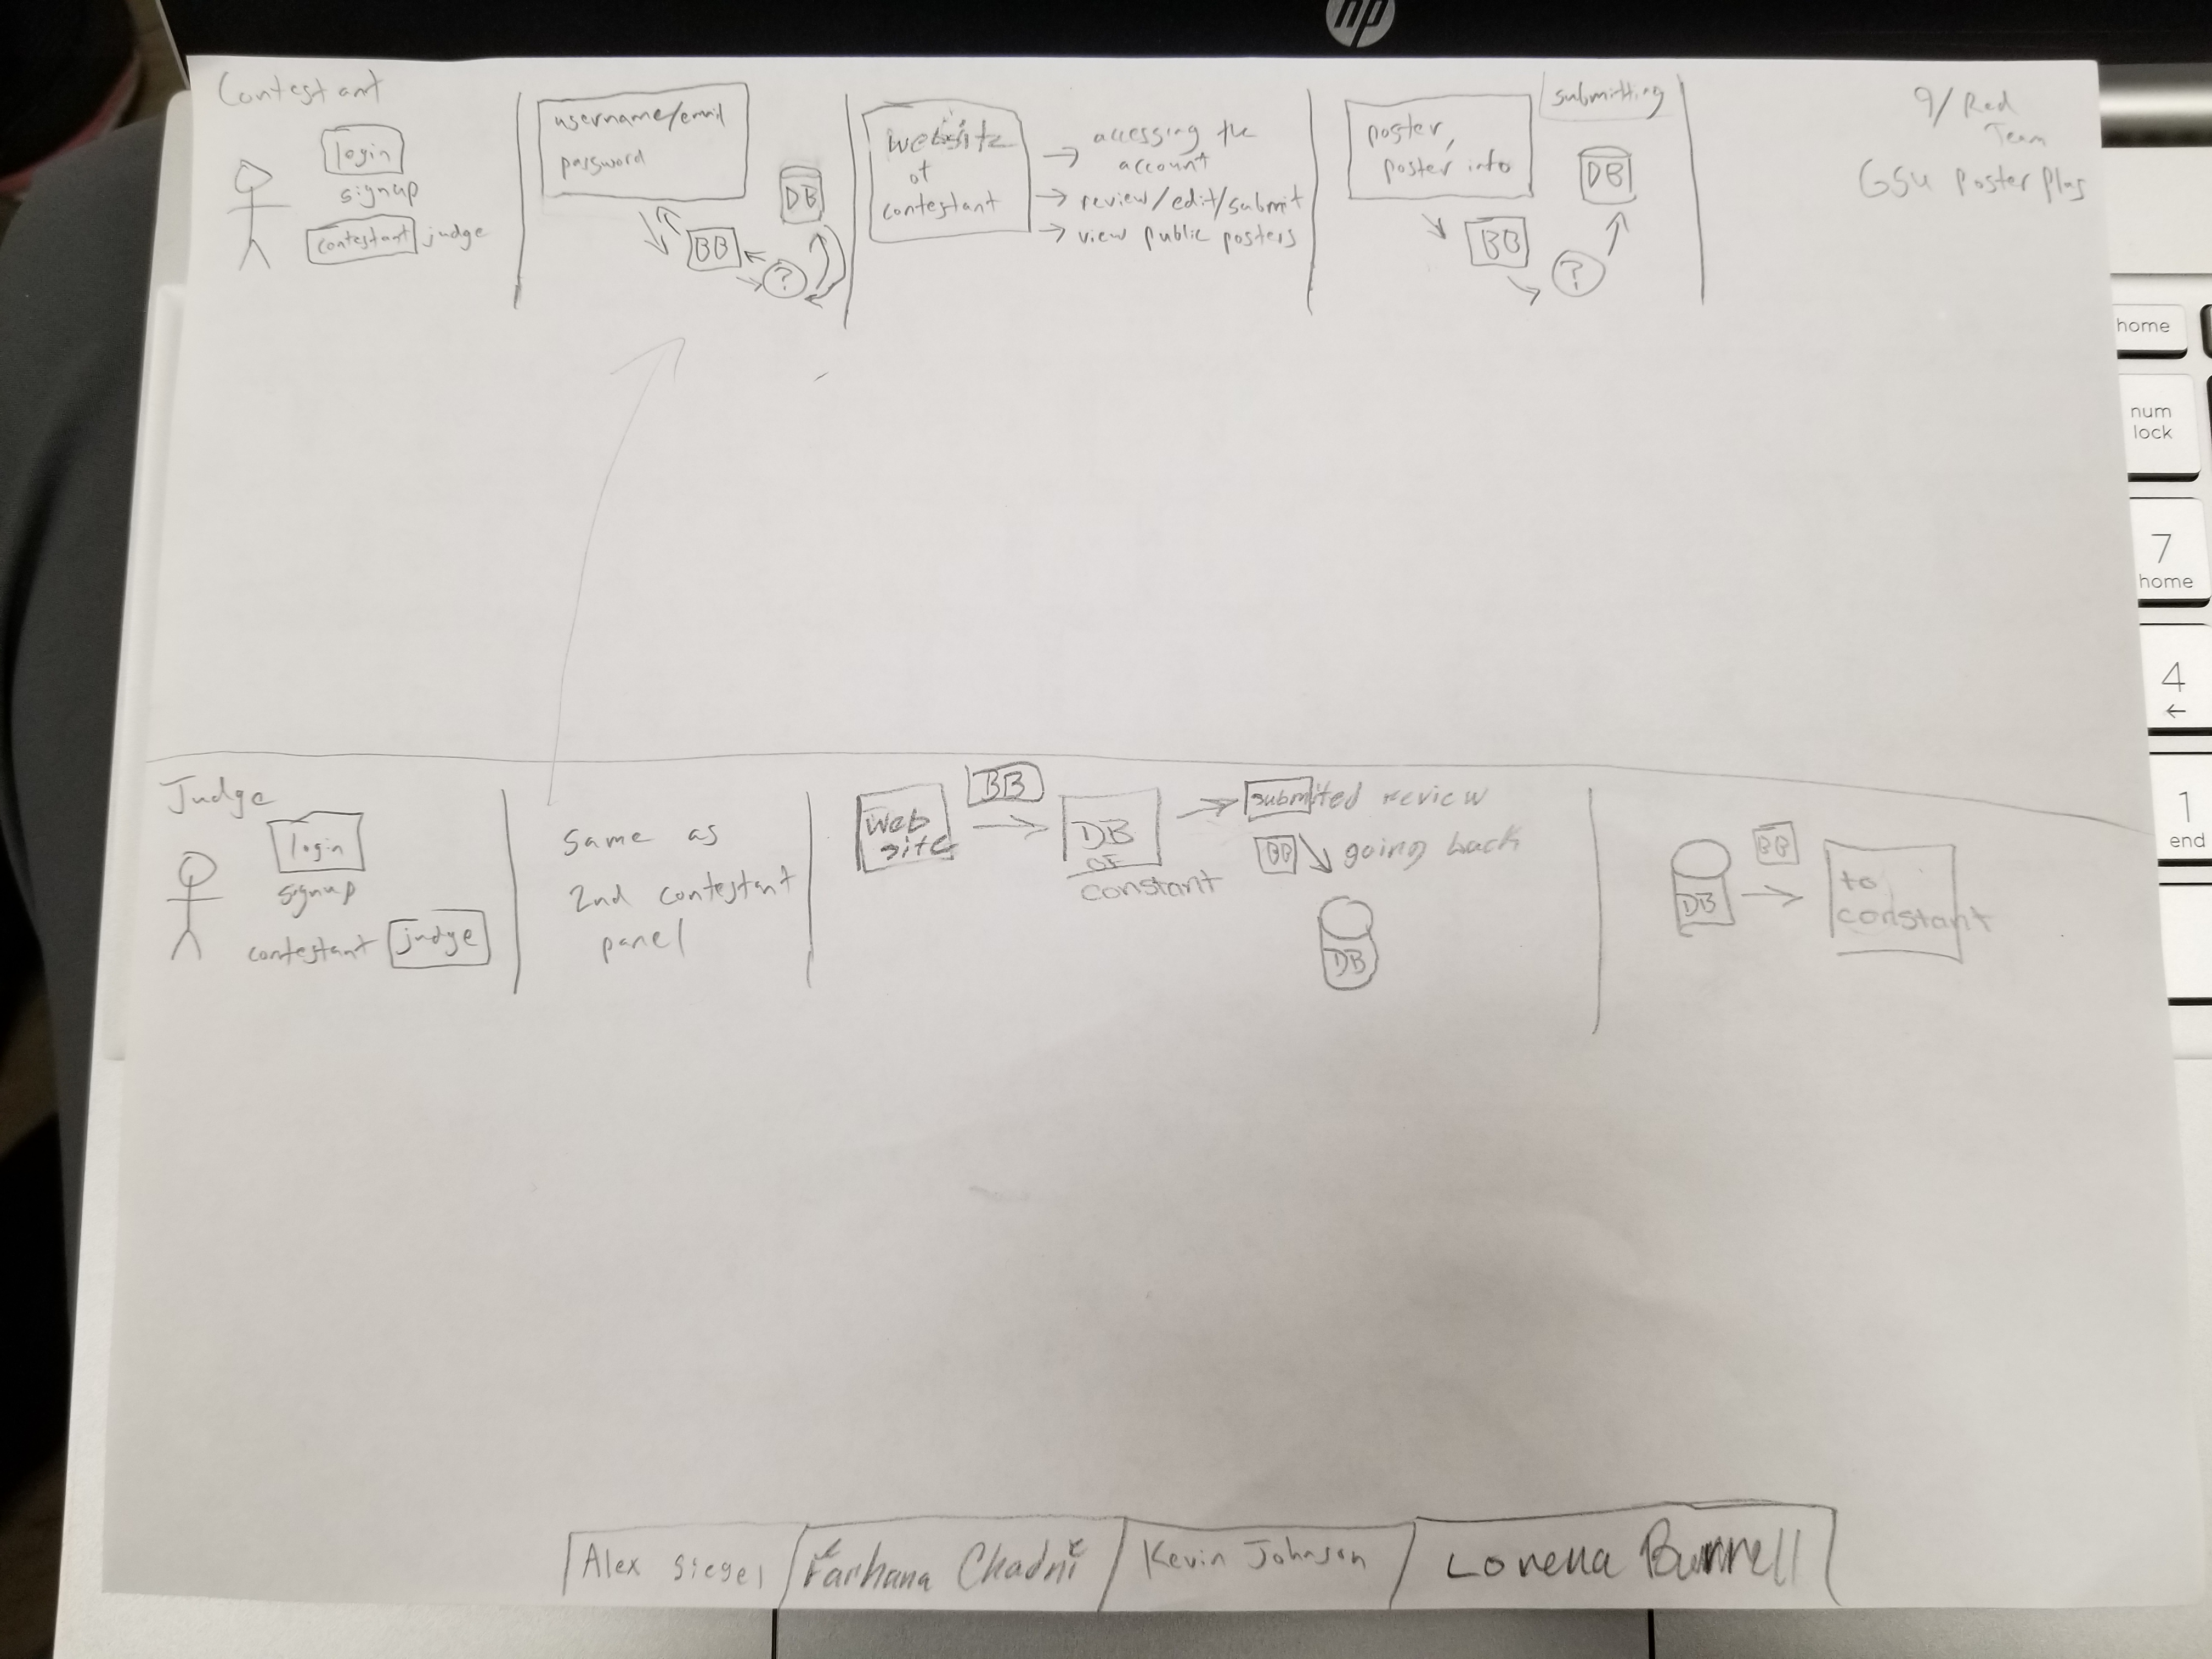 hp
Contestant
login
signup
contestant judge
username/email
password
DB
BB
?
website
of
contestant
→ accessing the
account
→ review/edit/submit
→ view public posters
poster,
poster info
submitting
DB
BB
?
9/Red
Team
GSU Poster Plus
Judge
login
signup
contestant judge
Same as
2nd contestant
panel
Web
site
BB
DB
OF
constant
submited review
BB going back
DB
DB
BB
to
constant
Alex Siegel
Farhana Chadni
Kevin Johnson
Lorena Burrell
home
num
lock
7
home
4
←
1
end